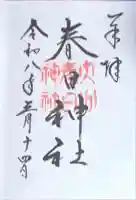 奉拝
春日神社
令和八年三月十四日